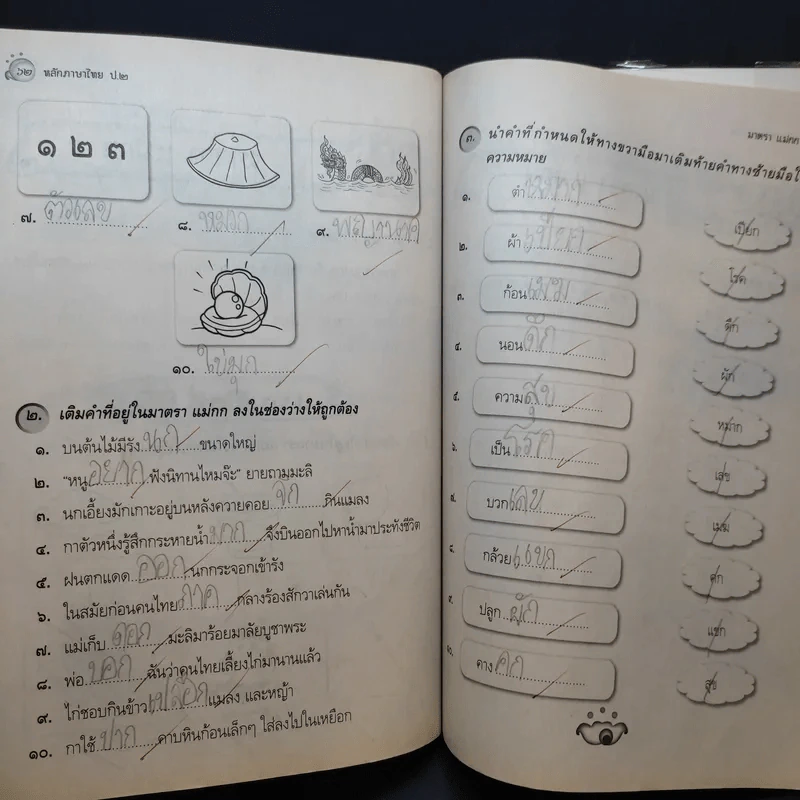 ๖๒ หลักภาษาไทย ป.๒
๑ ๒ ๓
๗. ตัวเลข
๘. หมวก
๙. พญานาค
๑๐. ไข่มุก
๒. เติมคำที่อยู่ในมาตรา แม่กก ลงในช่องว่างให้ถูกต้อง
๑. บนต้นไม้มีรัง นก ขนาดใหญ่
๒. “หนู อยาก ฟังนิทานไหมจ๊ะ” ยายถามมะลิ
๓. นกเอี้ยงมักเกาะอยู่บนหลังควายคอย จิก กินแมลง
๔. กาตัวหนึ่งรู้สึกกระหายน้ำ มาก จึงบินออกไปหาน้ำมาประทังชีวิต
๕. ฝนตกแดด ออก นกกระจอกเข้ารัง
๖. ในสมัยก่อนคนไทย ภาค กลางร้องสักวาเล่นกัน
๗. แม่เก็บ ดอก มะลิมาร้อยมาลัยบูชาพระ
๘. พ่อ บอก ฉันว่าคนไทยเลี้ยงไก่มานานแล้ว
๙. ไก่ชอบกินข้าว เปลือก แมลง และหญ้า
๑๐. กาใช้ ปาก คาบหินก้อนเล็กๆ ใส่ลงไปในเหยือก
มาตรา แม่กก
๓. นำคำที่กำหนดให้ทางขวามือมาเติมท้ายคำทางซ้ายมือ
ความหมาย
๑. ตำ หมาก
๒. ผ้า เปียก
๓. ก้อน เมฆ
๔. นอน ดึก
๕. ความ สุข
๖. เป็น โรค
๗. บวก เลข
๘. กล้วย แขก
๙. ปลูก ผัก
๑๐. คาง คก
เปียก
โรค
ดึก
ผัก
หมาก
เลข
เมฆ
คก
แขก
สุข